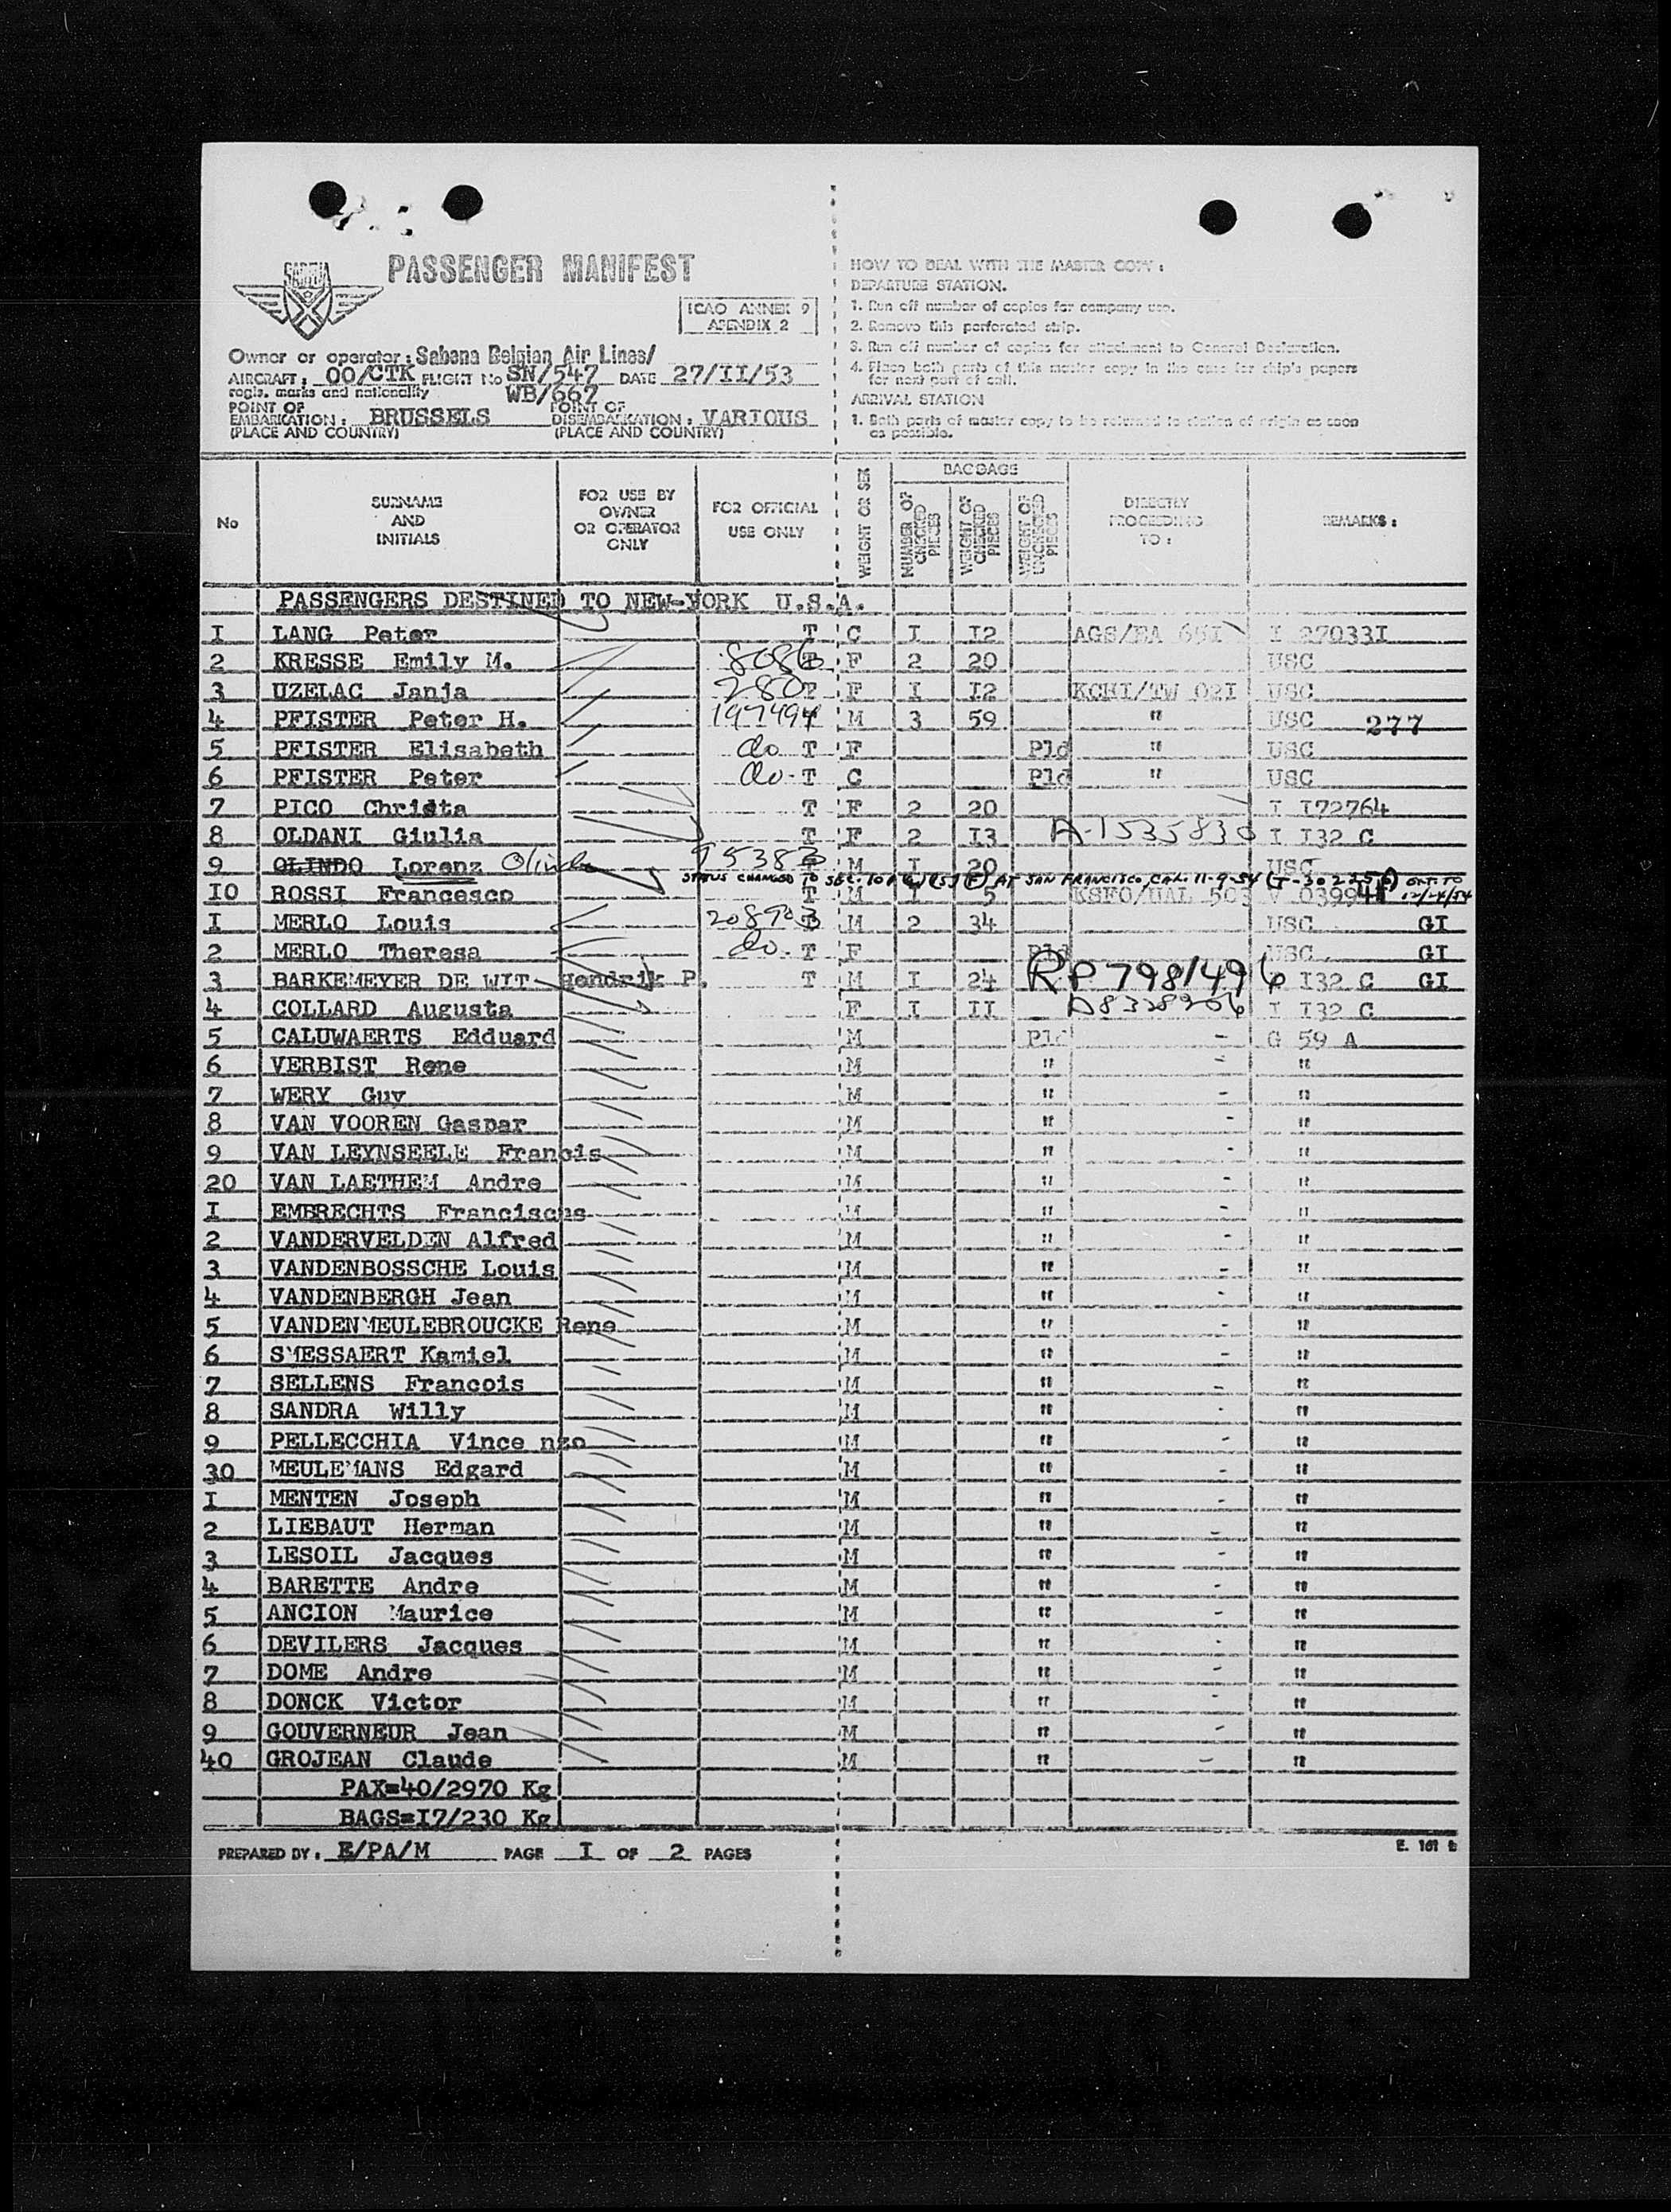 SABENA
PASSENGER MANIFEST
ICAO ANNEX 9
APENDIX 2
Owner or operator: Sabena Belgian Air Lines/
AIRCRAFT: OO/CTK FLIGHT No SN/547 DATE 27/II/53
regis. marks and nationality WB/667
POINT OF EMBARKATION: BRUSSELS POINT OF DISEMBARKATION: VARIOUS
(PLACE AND COUNTRY) (PLACE AND COUNTRY)
HOW TO DEAL WITH THE MASTER COPY:
DEPARTURE STATION.
1. Run off number of copies for company use.
2. Remove this perforated strip.
3. Run off number of copies for attachment to General Declaration.
4. Place both parts of this master copy in the case for ship's papers
for next port of call.
ARRIVAL STATION
1. Both parts of master copy to be returned to station of origin as soon
as possible.
No
SURNAME AND INITIALS
FOR USE BY OWNER OR OPERATOR ONLY
FOR OFFICIAL USE ONLY
WEIGHT OR SEX
BAGGAGE
NUMBER OF CHECKED PIECES
WEIGHT OF CHECKED PIECES
WEIGHT OF UNCHECKED PIECES
DIRECTLY PROCEEDING TO:
REMARKS:
PASSENGERS DESTINED TO NEW-YORK U.S.A.
I LANG Peter T C I I2 AGS/EA 65I I 27033I
2 KRESSE Emily M. 8086 T F 2 20 USC
3 UZELAC Janja 280 T F I I2 KCHI/TW 02I USC
4 PFISTER Peter H. 197494 M 3 59 " USC 277
5 PFISTER Elisabeth do T F Pld " USC
6 PFISTER Peter do. T C Pld " USC
7 PICO Christa T F 2 20 I I72764
8 OLDANI Giulia T F 2 I3 A-1535830 I I32 C
9 OLINDO Lorenz Olindo 95383 M I 20 USC
STATUS CHANGED TO SEC. 101 (a)(15)(F) AT SAN FRANCISCO, CAL. 11-9-54 EXT. TO 12/24/54
IO ROSSI Francesco T M I 5 KSFO/UAL 503 V 039941
I MERLO Louis 208903 M 2 34 USC GI
2 MERLO Theresa do. T F Pld USC GI
3 BARKEMEYER DE WIT Hendrik P. T M I 24 RP 7981496 I32 C GI
4 COLLARD Augusta F I II A8328906 I I32 C
5 CALUWAERTS Edduard M Pld - G 59 A
6 VERBIST Rene M " - "
7 WERY Guy M " - "
8 VAN VOOREN Gaspar M " - "
9 VAN LEYNSEELE Francis M " - "
20 VAN LAETHEM Andre M " - "
I EMBRECHTS Franciscus M " - "
2 VANDERVELDEN Alfred M " - "
3 VANDENBOSSCHE Louis M " - "
4 VANDENBERGH Jean M " - "
5 VANDENMEULEBROUCKE Rene M " - "
6 SMESSAERT Kamiel M " - "
7 SELLENS Francois M " - "
8 SANDRA Willy M " - "
9 PELLECCHIA Vince nzo M " - "
30 MEULEMANS Edgard M " - "
I MENTEN Joseph M " - "
2 LIEBAUT Herman M " - "
3 LESOIL Jacques M " - "
4 BARETTE Andre M " - "
5 ANCION Maurice M " - "
6 DEVILERS Jacques M " - "
7 DOME Andre M " - "
8 DONCK Victor M " - "
9 GOUVERNEUR Jean M " - "
40 GROJEAN Claude M " - "
PAX=40/2970 Kg
BAGS=I7/230 Kg
PREPARED BY: E/PA/M PAGE I OF 2 PAGES
E. 161